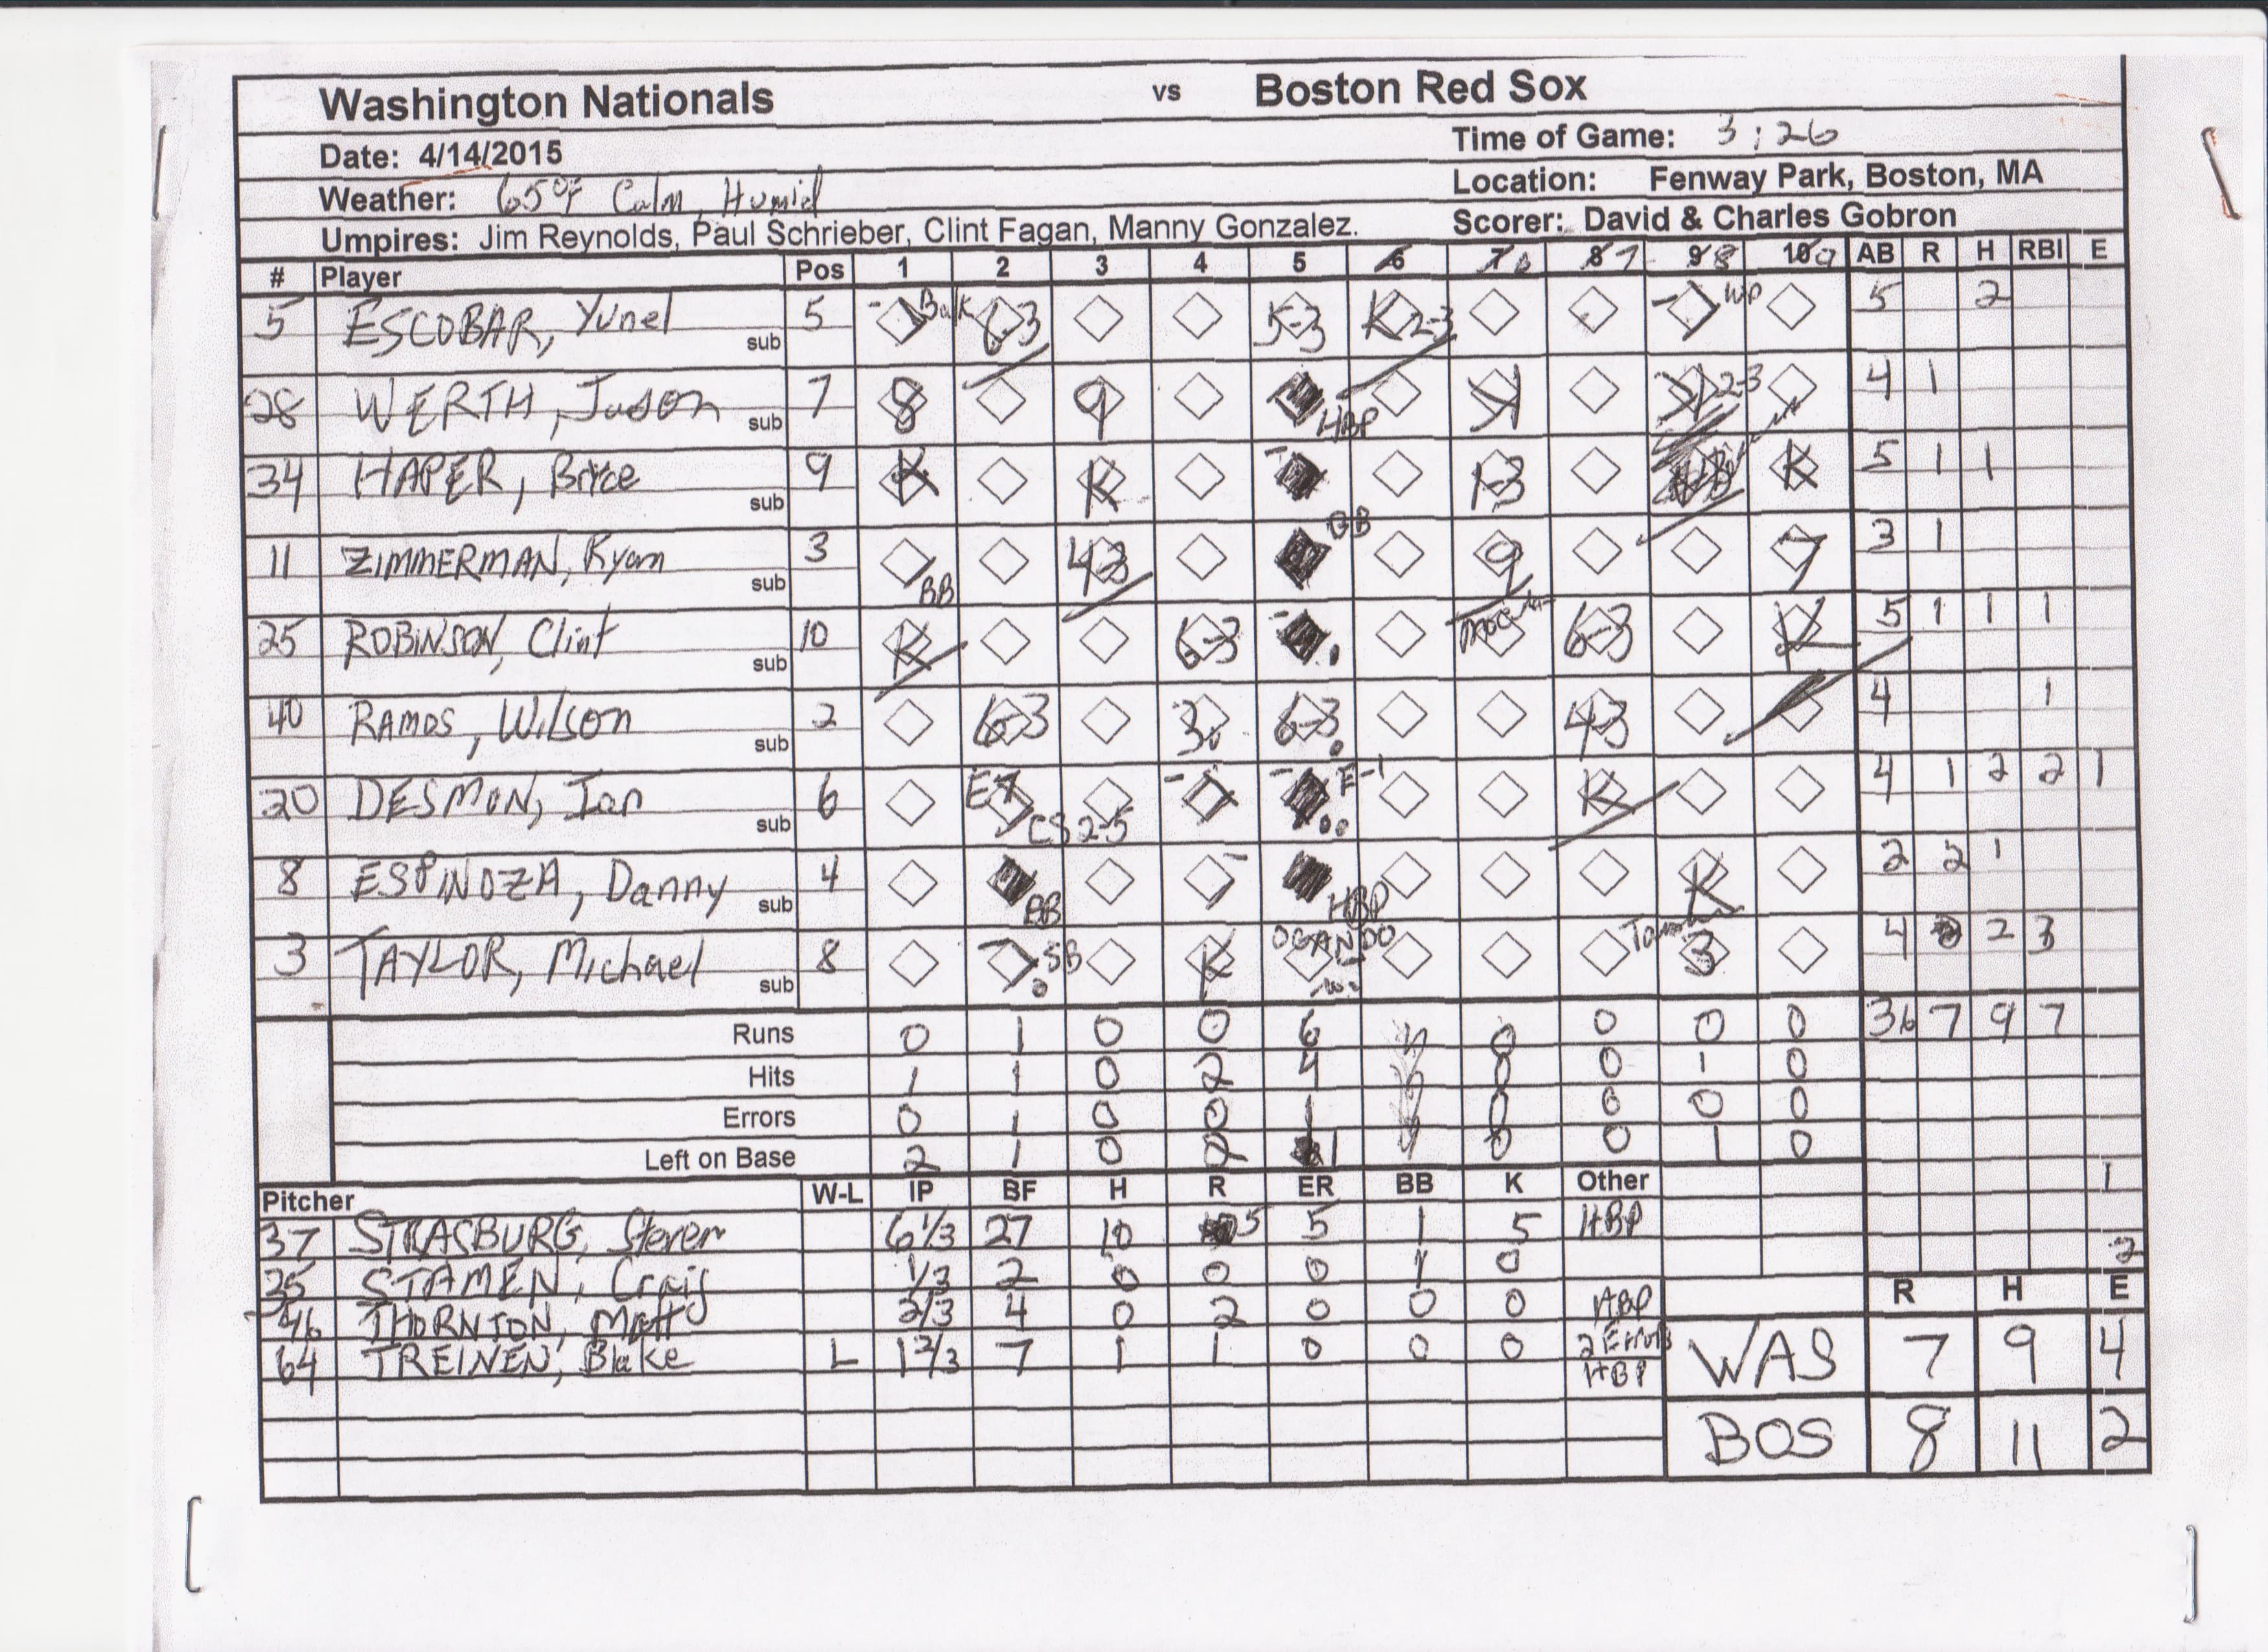 Washington Nationals vs Boston Red Sox
Time of Game: 3:26
Date: 4/14/2015
Location: Fenway Park, Boston, MA
Weather: 65°F Calm, Humid
Scorer: David & Charles Gobron
Umpires: Jim Reynolds, Paul Schrieber, Clint Fagan, Manny Gonzalez.
# Player Pos 1 2 3 4 5 6 7 6 8 7 9 8 10 9 AB R H RBI E
5 ESCOBAR, Yunel sub 5 Balk 6-3 5-3 K 2-3 WP 5 2
28 WERTH, Jason sub 7 8 9 HBP K K 2-3 4 1
34 HAPER, Bryce sub 9 K K 1-3 K 5 1 1
11 ZIMMERMAN, Ryan sub 3 BB 43 BB 9 7 3 1
25 ROBINSON, Clint sub 10 K 6-3 6-3 K 5 1 1 1
40 RAMOS, Wilson sub 2 6-3 3 6-3 43 4 1
20 DESMON, Ian sub 6 E7 CS 2-5 E-1 K 4 1 2 2 1
8 ESPINOZA, Danny sub 4 BB HBP K 2 2 1
3 TAYLOR, Michael sub 8 SB K OGANDO 3 4 2 3
Runs 0 1 0 0 6 0 0 0 0 36 7 9 7
Hits 1 1 0 2 4 0 0 1 0
Errors 0 1 0 0 1 0 0 0 0
Left on Base 2 1 0 2 1 0 0 1 0
1
Pitcher W-L IP BF H R ER BB K Other
37 STRASBURG, Steven 6 1/3 27 10 5 5 1 5 HBP
2
35 STAMEN, Craig 1/3 2 0 0 0 1 0
R H E
46 THORNTON, Matt 2/3 4 0 2 0 0 0 HBP
64 TREINEN, Blake L 1 2/3 7 1 1 0 0 0 2 Errors HBP
WAS 7 9 4
BOS 8 11 2